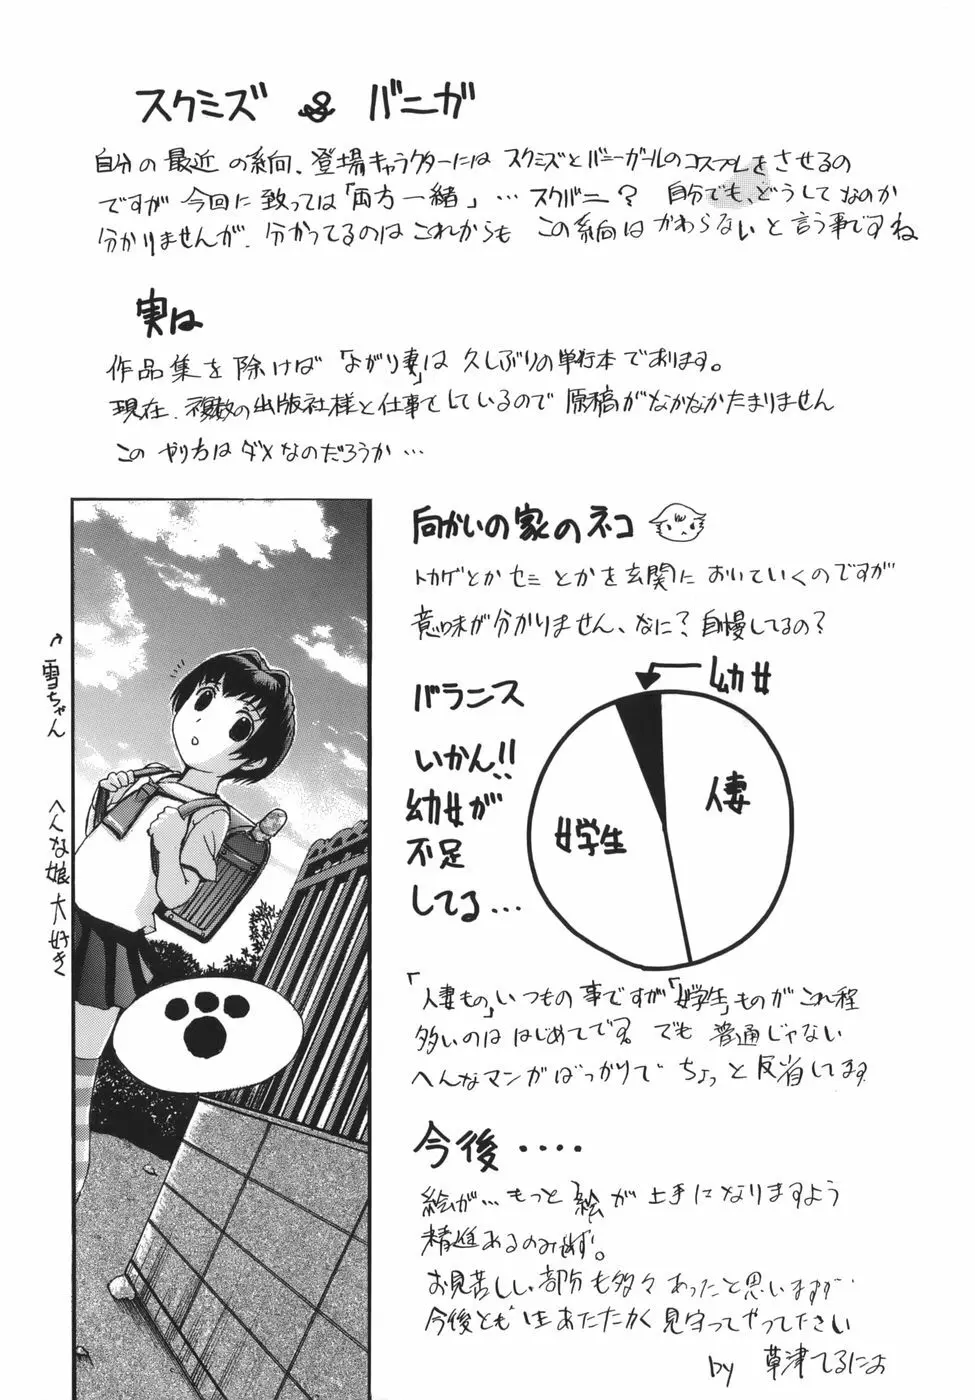 スクミズ & バニガ
自分の最近の系向、登場キャラクターにはスクミズとバニーガールのコスプレをさせるの
ですが今回に致っては「両方一緒」…スクバニ？ 自分でも、どうしてなのか
分かりませんが、分かってるのはこれからもこの系向はかわらないと言う事ですね
実は
作品集を除けば「ながり妻」は久しぶりの単行本であります。
現在、複数の出版社様と仕事をしているので原稿がなかなかたまりません
このやり方はダメなのだろうか…
向かいの家のネコ
トカゲとかセミとかを玄関においていくのですが
意味が分かりません、なに？自慢してるの？
バランス
いかん!!
幼女が
不足
してる…
幼女
人妻
女学生
「人妻もの」いつもの事ですが「女学生」ものがこれ程
多いのははじめてです。でも普通じゃない
へんなマンガばっかりでちょっと反省してます
今後‥‥
絵が…もっと絵が上手になりますよう
精進あるのみです。
お見苦しい部分も多々あったと思いますが
今後ともあたたかく見守ってやって下さい
by 草津てるにお
雪ちゃん
へんな娘大好き